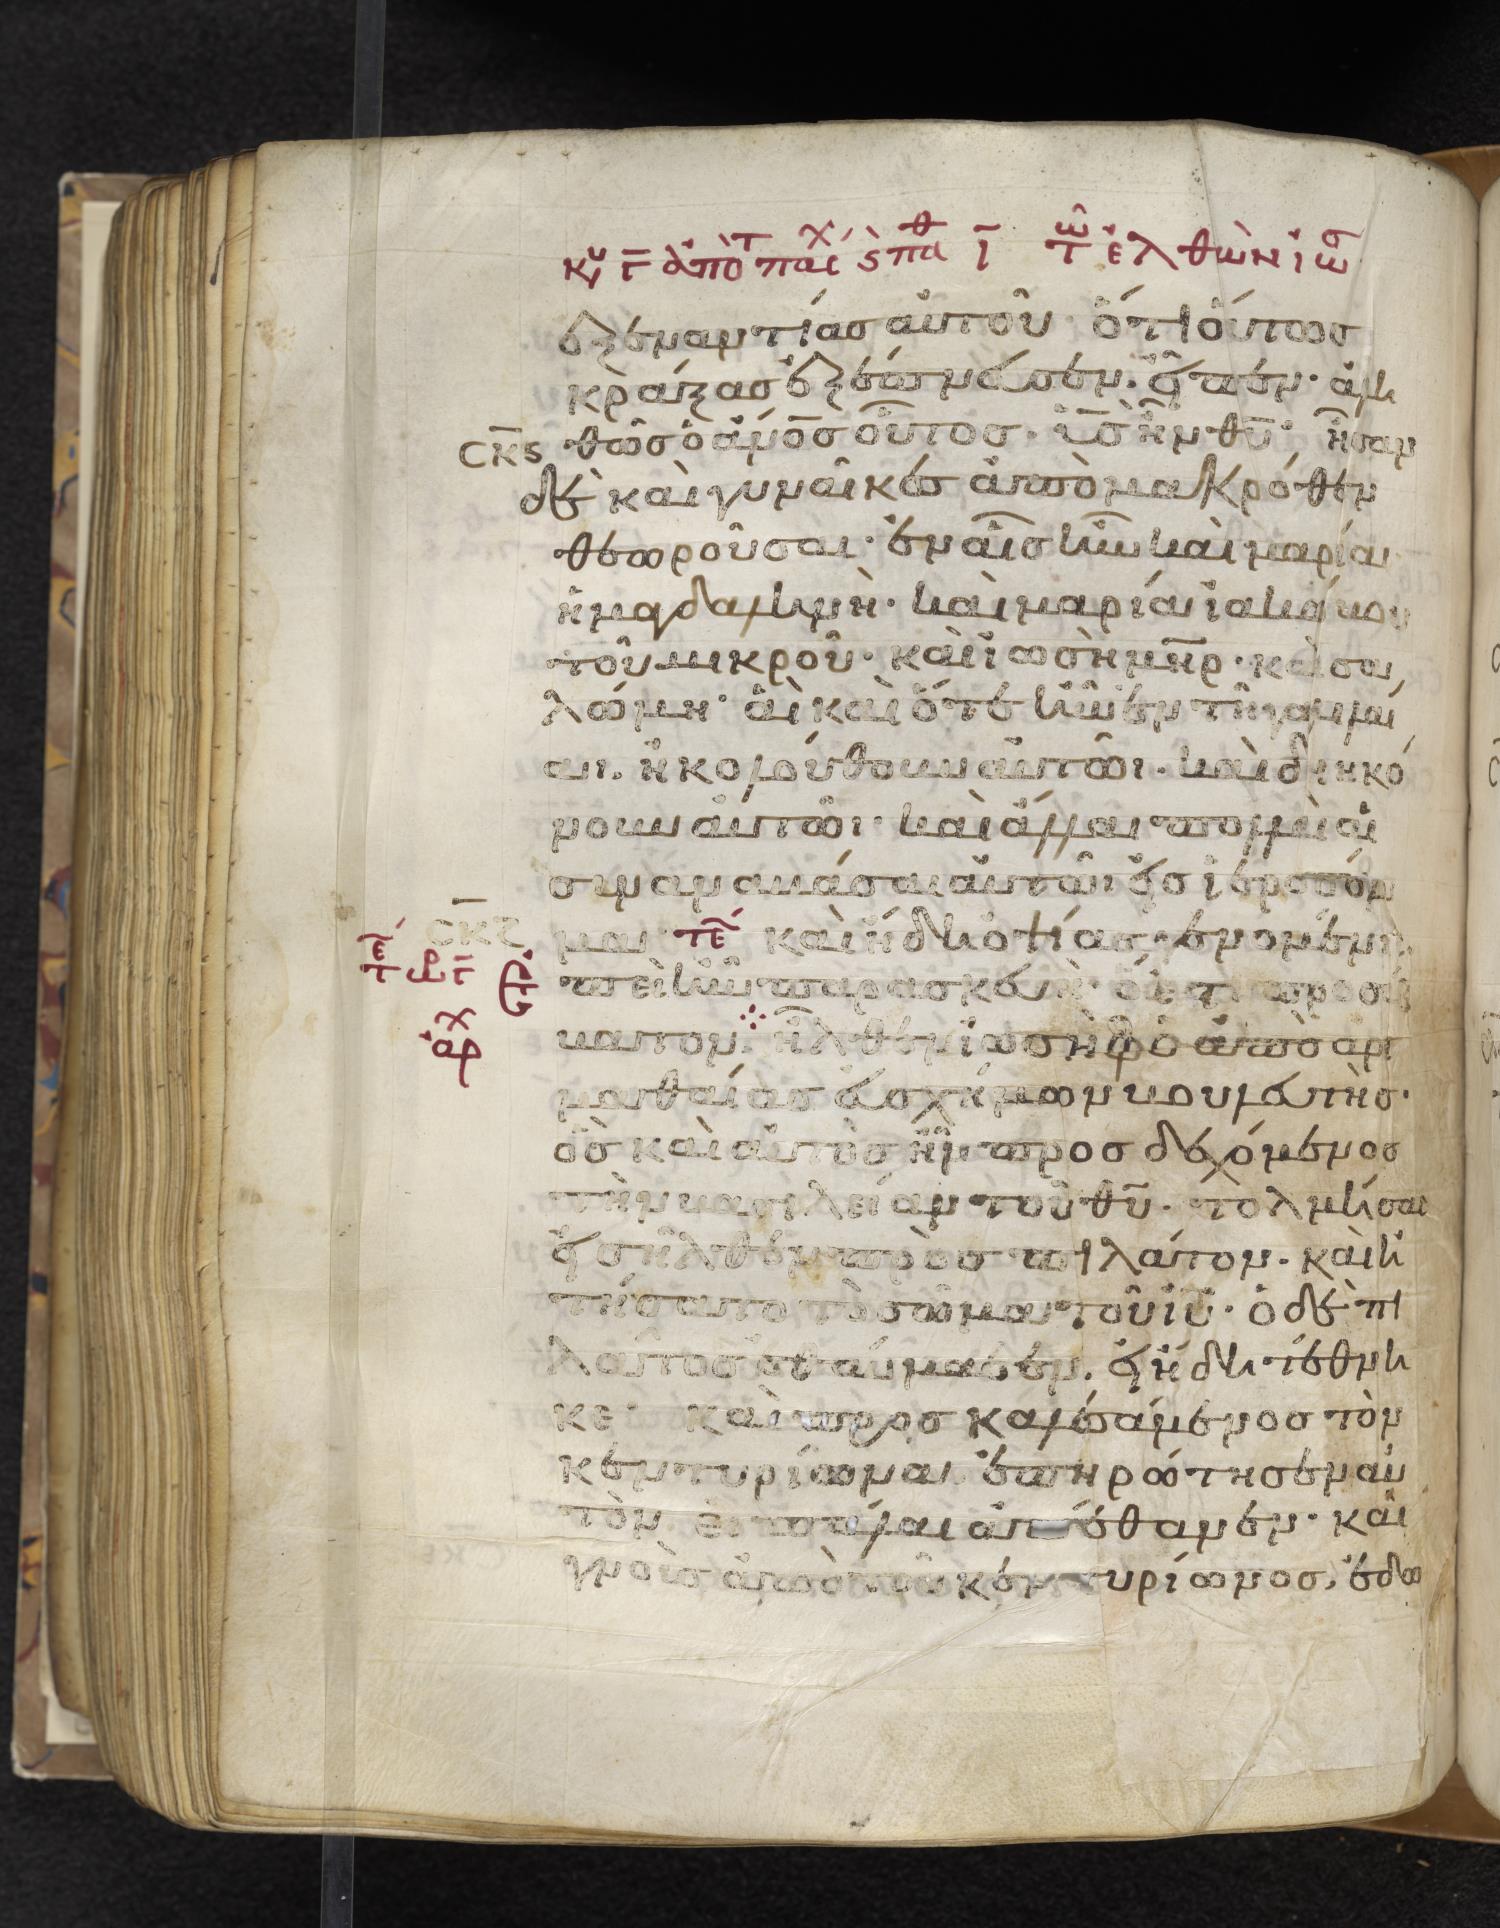 ἐξεναντίας αὐτοῦ· ὅτι οὕτως
κράξας ἐξέπνευσεν. εἶπεν· ἀλη
σκϛ θῶς ὁ ἄν̅ο̅ς οὗτος. υ̅ς̅ ἦν θ̅υ̅· ἦσαν
δὲ καὶ γυναῖκες ἀπὸ μακρόθεν
θεωροῦσαι· ἐν αἷς ἦν καὶ μαρία
ἡ μαγδαληνὴ· καὶ μαρία ἰακώβου
τοῦ μικροῦ· καὶ ἰωσὴ μ̅η̅ρ̅· καὶ σα
λώμη· αἳ καὶ ὅτε ἦν ἐν τῇ γαλιλαί
αι. ἠκολούθουν αὐτῶι. καὶ διηκό
νουν αὐτῶι· καὶ ἄλλαι πολλαὶ αἱ
συναναβάσαι αὐτῶι εἰς ἱεροσόλυ
σκζ μα· τε καὶ ἤδη ὀψίας γενομένης
ἐπεὶ ἦν παρασκευὴ· ὅ ἐστι προσά
βατον. ἦλθεν ἰωσὴφ ὁ ἀπὸ ἀρι
μαθαίας εὐσχήμων βουλευτὴς.
ὃς καὶ αὐτὸς ἦν προσδεχόμενος
τὴν βασιλείαν τοῦ θ̅υ̅. τολμήσας
εἰσῆλθεν πρὸς πιλάτον. καὶ ἠ
τήσατο τὸ σῶμα τοῦ ι̅υ̅. ὁ δὲ πι
λάτος ἐθαύμασεν. εἰ ἤδη τέθνη
κε· καὶ προσκαλεσάμενος τὸν
κεντυρίωνα ἐπηρώτησεν αὐ
τὸν εἰ πάλαι ἀπέθανεν. καὶ
γνοὺς ἀπὸ τοῦ κεντυρίωνος, ἐδω